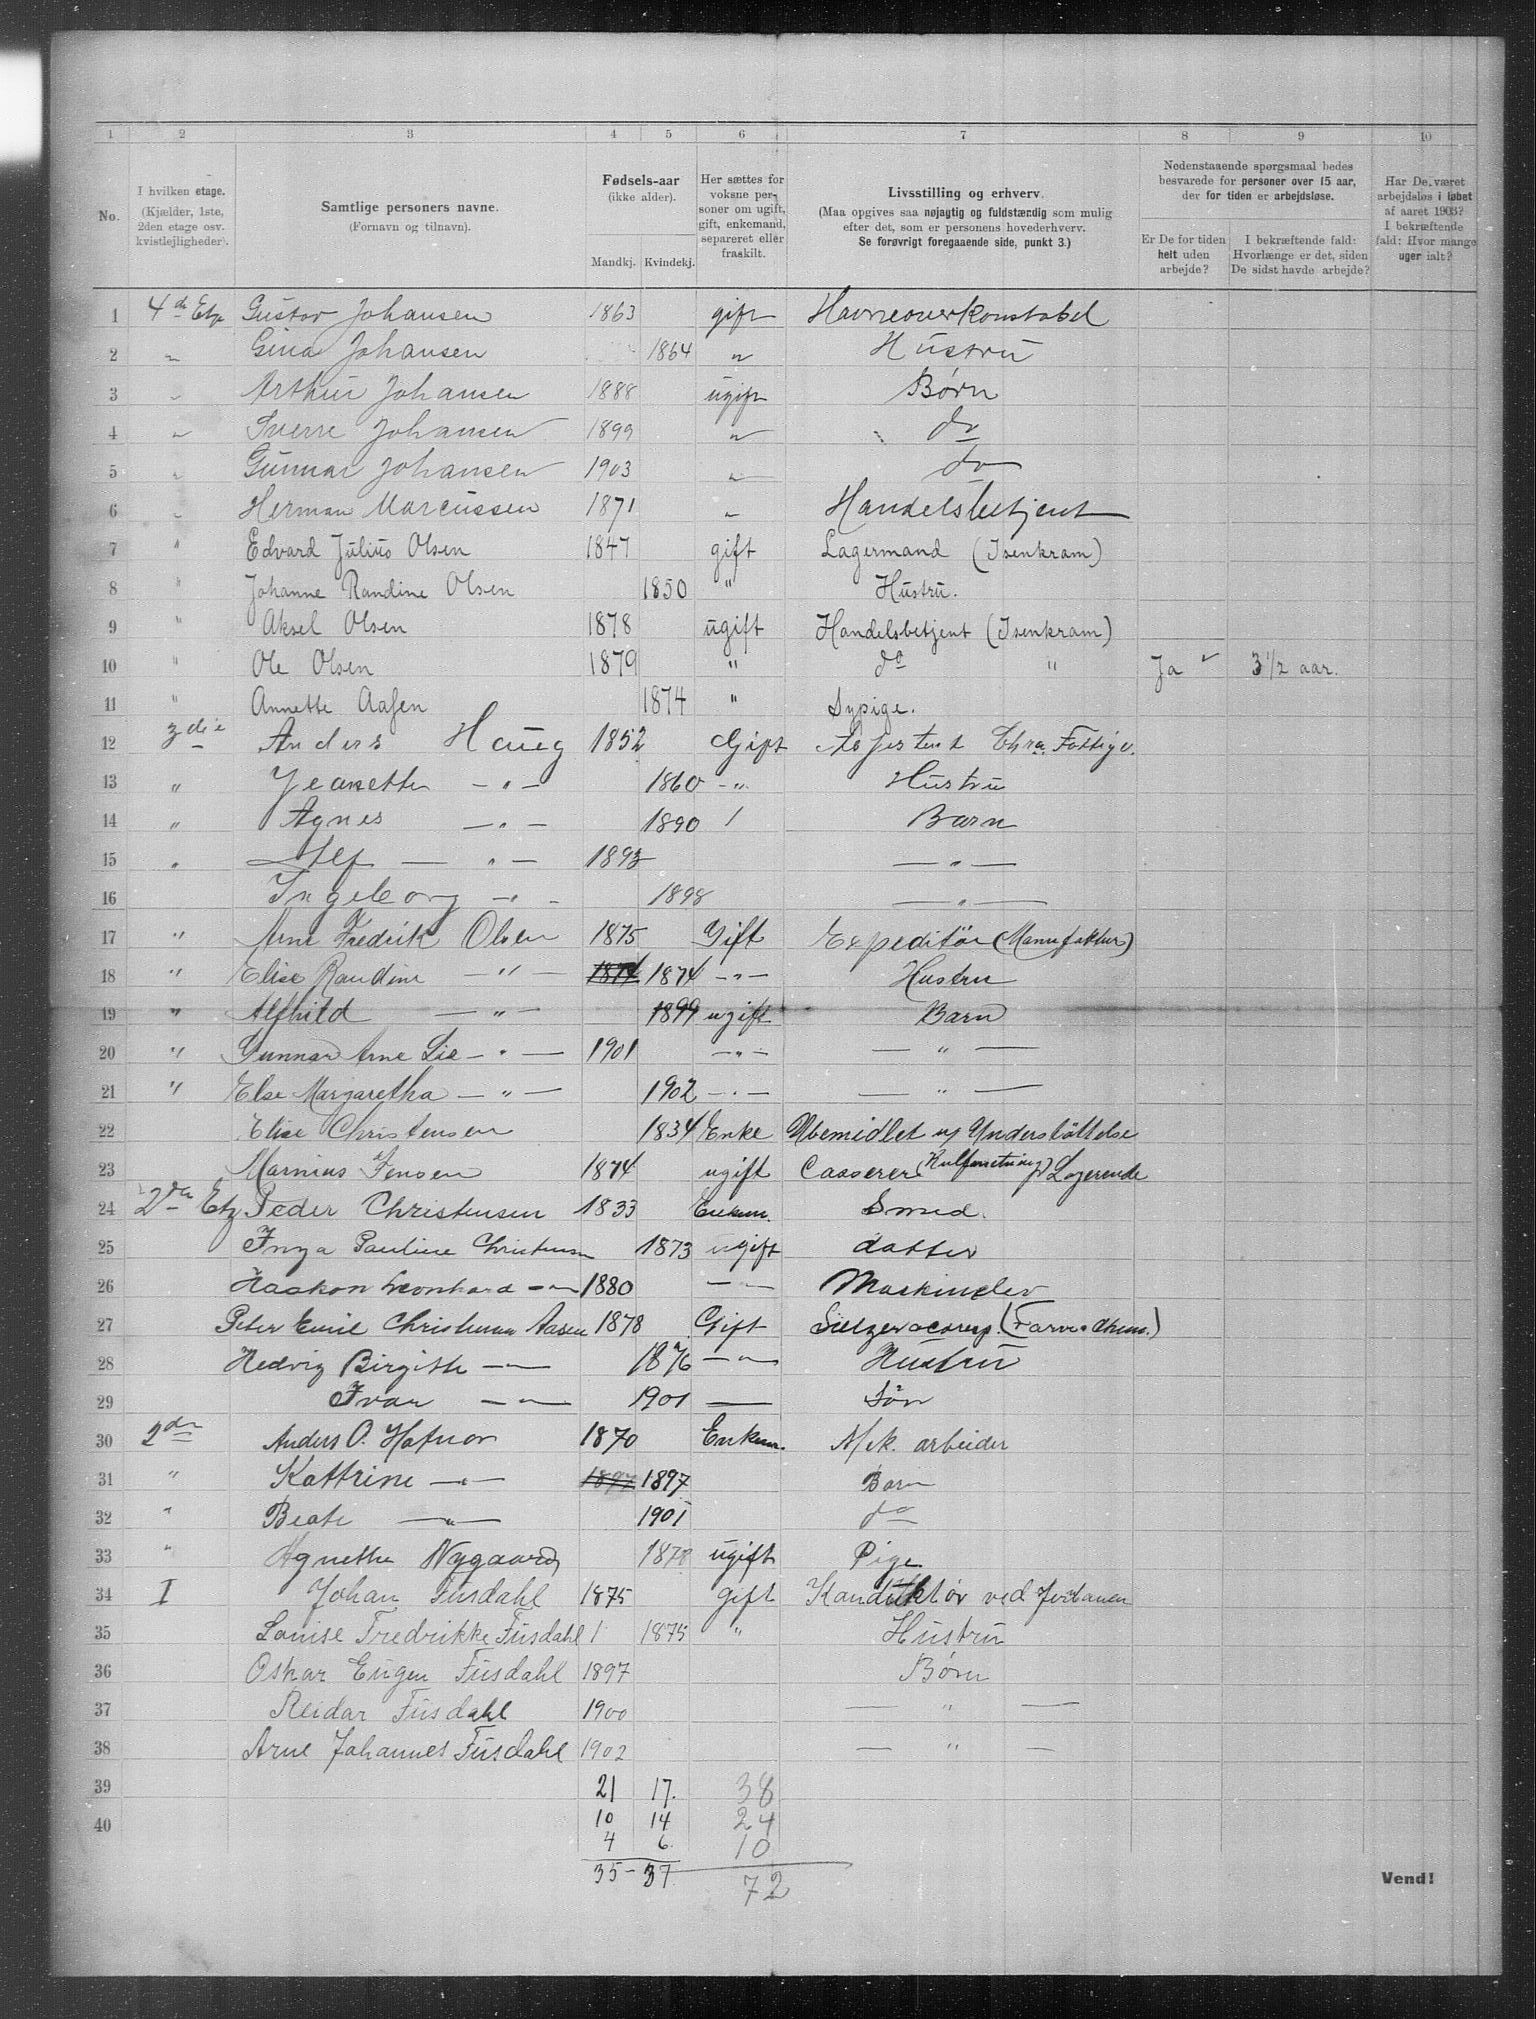 1 2 3 4 5 6 7 8 9 10
No.
I hvilken etage. (Kjælder, 1ste, 2den etage osv. kvistleiligheder).
Samtlige personers navne. (Fornavn og tilnavn).
Fødsels-aar (ikke alder). Mandkj. Kvindekj.
Her sættes for voksne personer om ugift, gift, enkemand, separeret eller fraskilt.
Livsstilling og erhverv. (Maa opgives saa nøjagtig og fuldstændig som mulig efter det, som er personens hovederhverv. Se forøvrigt foregaaende side, punkt 3.)
Nedenstaaende spørgsmaal bedes besvarede for personer over 15 aar, der for tiden er arbejdsløse.
Er De for tiden helt uden arbejde?
I bekræftende fald: Hvorlænge er det, siden De sidst havde arbejde?
Har De været arbejdsløs i løbet af aaret 1903? I bekræftende fald: Hvor mange uger ialt?
1 4de Etg Gustav Johansen 1863 gift Havneoverkonstabel
2 " Gina Johansen 1864 " Hustru
3 " Arthur Johansen 1888 ugift Børn
4 " Sverre Johansen 1899 " do
5 " Gunnar Johansen 1903 " do
6 " Herman Marcussen 1871 " Handelsbetjent
7 " Edvard Julius Olsen 1847 gift Lagermand (Isenkram)
8 " Johanne Randine Olsen 1850 " Hustru.
9 " Aksel Olsen 1878 ugift Handelsbetjent (Isenkram)
10 " Ole Olsen 1879 " do " Ja 3 1/2 aar.
11 " Annette Aasen 1874 " Sypige.
12 3die Anders Haug 1852 Gift Assistent Chra. Fattigv.
13 " Jeanette — " — 1860 — " Hustru
14 " Agnes — " — 1890 / Barn
15 " Alf — " — 1893 — " —
16 Ingeborg — " — 1898 — " —
17 " Arne Fredrik Olsen 1875 Gift Expeditör (Manufaktur)
18 " Elise Randine — " — 1874 1874 — " — Hustru
19 " Alfhild — " — 1899 ugift Barn
20 " Gunnar Arne Lie — " — 1901 — " — — " —
21 " Else Margaretha — " — 1902 — " — — " —
22 Elise Christensen 1834 Enke Ubemidlet Understöttelse
23 Marnius Jensen 1874 ugift Casserer (Kulforretning) Logerende
24 2den Etg Peder Christensen 1833 Enkem. Smed.
25 Inga Pauline Christensen 1873 ugift datter
26 Haakon Leonhard — " — 1880 — " — Maskinelev
27 Peter Emil Christensen Aasen 1878 Gift (Farve & Chem.)
28 Hedvig Birgitte — " — 1876 — " — Hustru
29 Ivar — " — 1901 — Sön
30 2den Anders O. Hofnor 1870 Enkem. M/k. arbeider
31 " Kattrine — " — 1897 1897 Barn
32 " Beate — " — 1901 do
33 " Agnethe Nygaard ugift Pige
34 I Johan Fusdahl 1875 gift Konduktör ved
35 Louise Fredrikke Fusdahl 1 1875 " Hustru
36 Oskar Eugen Fusdahl 1897 Børn
37 Reidar Fusdahl 1900 — " —
38 Arne Johannes Fusdahl 1902 — " —
39 21 17. 38
40 10 14 24
4 6. 10
35 - 37 72
Vend!